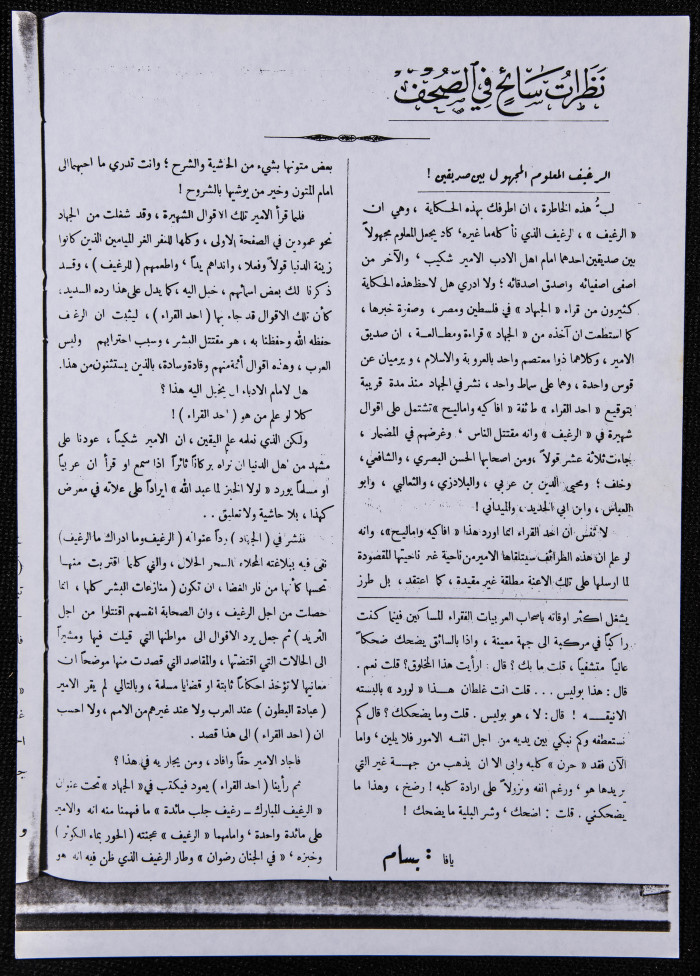 نظرات سائح في الصحف
الرغيف المعلوم المجهول بين صديقين !
لبُّ هذه الخاطرة ، ان اطرفك بهذه الحكاية ، وهي ان
« الرغيف » ، الرغيف الذي نأكله ما غيره ، كاد يجعل المعلوم مجهولاً
بين صديقين احدهما امام اهل الادب الامير شكيب ، والآخر من
اصفى اصفيائه واصدق اصدقائه ؛ ولا ادري هل لاحظ هذه الحكاية
كثيرون من قراء « الجهاد » في فلسطين ومصر ، وصفوة خبرها ،
كما استطعت ان آخذه من « الجهاد » قراءة ومطالعة ، ان صديق
الامير ، وكلاهما ذوا معتصم واحد بالعروبة والاسلام ، ويرميان عن
قوس واحدة ، وهما على سماط واحد ، نشر في الجهاد منذ مدة قريبة
بتوقيع « احد القراء » طائفة « افاكيه واماليح » تشتمل على اقوال
شهيرة في « الرغيف » وانه مقتتل الناس ، وغرضهم في المضمار ،
جاءت ثلاثة عشر قولاً ، ومن اصحابها الحسن البصري ، والشافعي ،
وخلف ؛ ومحيي الدين بن عربي ، والبلاذري ، والثعالبي ، وابو
العباس ، وابن ابي الحديد ، والميداني !
لا تنس ان احد القراء انما اورد هذا « افاكيه واماليح » ، وانه
لو علم ان هذه الطرائف سيتلقاها الامير من ناحية غير ناحيتها المقصودة
لما ارسلها على تلك الاعنة مطلقة غير مقيدة ، كما اعتقد ، بل طرز
يشغل اكثر اوقاته باصحاب العربيات الفقراء المساكين فبينما كنت
راكباً في مركبة الى جهة معينة ، واذا بالسائق يضحك ضحكاً
عالياً متشفياً ، قلت ما بك ؟ قال : ارأيت هذا المخلوق ؟ قلت نعم .
قال : هذا بوليس ... قلت انت غلطان هذا « لورد » بالبسته
الانيقة ! قال : لا ، هو بوليس . قلت وما يضحكك ؟ قال كم
نستعطفه وكم نبكي بين يديه من اجل اتفه الامور فلا يلين ، واما
الآن فقد « حرن » كلبه وابى الا ان يذهب من جهة غير التي
يريدها هو ، ورغم انفه ونزولاً على ارادة كلبه ! رضخ ، وهذا ما
يضحكني . قلت : اضحك ، وشر البلية ما يضحك !
يافا : بسام
بعض متونها بشيء من الحاشية والشرح ؛ وانت تدري ما احبهما الى
امام المتون وخير من يوشيها بالشروح !
فلما قرأ الامير تلك الاقوال الشهيرة ، وقد شغلت من الجهاد
نحو عمودين في الصفحة الاولى ، وكلها للنفر الغر الميامين الذين كانوا
زينة الدنيا قولاً وفعلا ، وانداهم يداً ، واطعمهم ( للرغيف ) ، وقد
ذكرنا لك بعض اسمائهم ، خيل اليه ، كما يدل على هذا رده السديد ،
كأن تلك الاقوال قد جاء بها ( احد القراء ) ، ليثبت ان الرغيف
حفظه الله وحفظنا به ، هو مقتتل البشر ، وسبب احترابهم وليس
العرب ، وهذه اقوال أئمة منهم وقادة وسادة ، بالذين يستثنون من هذا .
هل لامام الادباء ان يخيل اليه هذا ؟
كلا لو علم من هو ( احد القراء ) !
ولكن الذي نعلمه علم اليقين ، ان الامير شكيباً ، عودنا على
مشهد من اهل الدنيا ان نراه بركاناً ثائراً اذا سمع او قرأ ان عربياً
او مسلماً يورد « لولا الخبز لما عبد الله » ايراداً على علاته في معرض
كهذا ، بلا حاشية ولا تعليق ..
فنشر في ( الجهاد ) رداً عنوانه ( الرغيف وما ادراك ما الرغيف )
نفى فيه ببلاغته المحلاء السحر الحلال ، والتي كلما اقتربت منها
تحسها كأنها من نار الغضا ، ان تكون ( منازعات البشر كلها ، انما
حصلت من اجل الرغيف ، وان الصحابة انفسهم اقتتلوا من اجل
الثريد ) ثم جعل يرد الاقوال الى مواطنها التي قيلت فيها ومشيراً
الى الحالات التي اقتضتها ، والمقاصد التي قصدت منها موضحاً ان
معانيها لا تؤخذ احكاماً ثابتة او قضايا مسلمة ، وبالتالي لم يقر الامير
( عبادة البطون ) عند العرب ولا عند غيرهم من الامم ، ولا احسب
ان ( احد القراء ) الى هذا قصد .
فاجاد الامير حقاً وافاد ، ومن يجاريه في هذا ؟
ثم رأينا ( احد القراء ) يعود فيكتب في « الجهاد » تحت عنوان
« الرغيف المبارك ــ رغيف جلب مائدة » ما فهمنا منه انه والامير
على مائدة واحدة ، وامامهما « الرغيف » عجنته ( الحور بماء الكوثر )
وخبزه ، « في الجنان رضوان » وطار الرغيف الذي ظن فيه انه هو